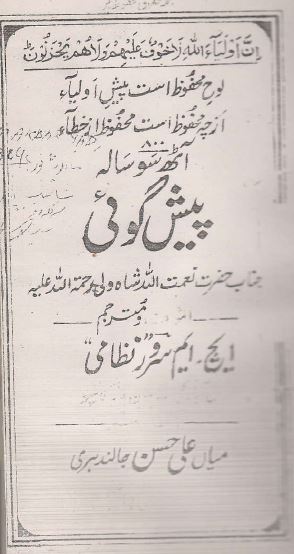 اِنَّ اَوْلِیَآءَ اللّٰہِ لَاخَوْفٌ عَلَیْہِمْ وَلَا ھُمْ یَحْزَنُوْنَ
لوحِ محفوظ است پیشِ اولیآء
ازچہ محفوظ است محفوظ از خطاء
۸۰۰
آٹھ سو سالہ
پیش گوئی
جناب حضرت نعمت اللہ شاہ ولی رحمۃ اللہ علیہ
مترجم
ایچ۔ ایم سرور نظامی
میاں علی حسن جالندہری